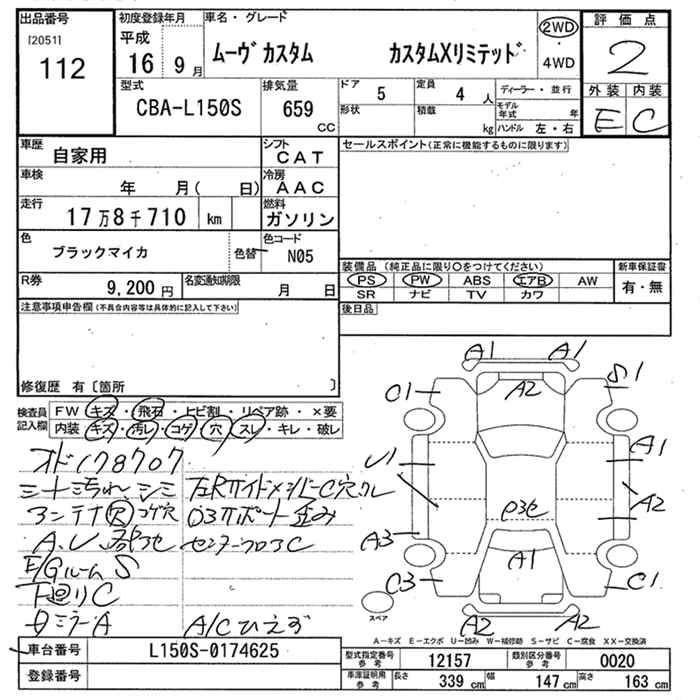 出品番号
[2051]
112
初度登録年月
平成
16 9月
車名・グレード
ムーヴカスタム カスタムXリミテッド
2WD
・
4WD
評価点
2
外装 内装
E C
型式
CBA-L150S
排気量
659
cc
ドア 5
形状
定員 4 人
積載 kg
ディーラー・並行
モデル年式 年
ハンドル 左・右
車歴
自家用
シフト
CAT
車検
年 月( 日)
冷房
AAC
走行
17万8千710 km
燃料
ガソリン
色
ブラックマイカ
色替
色コード
N05
R券
9,200円
名変通知期限
月 日
セールスポイント(正常に機能するものに限ります)
装備品 (純正品に限り○をつけてください)
PS PW ABS エアB AW
SR ナビ TV カワ
新車保証書
有・無
後日品
注意事項申告欄(不具合内容等は具体的に記入して下さい)
修復歴 有〔箇所 〕
検査員記入欄
FW キズ・飛石・ヒビ割・リペア跡・×要
内装 キズ・汚レ・コゲ・穴・スレ・キレ・破レ
オド178707
シート汚れシミ
アンテナ穴コゲ穴
A.U
E/Gルーム S
下廻りC
ミラーA
左Rサイドメンバー C穴
A/Cひえず
A1 A1
C1 A2 S1
U1 A1
A2
A3
A1
C3 C1
A2 A2
スペア
A－キズ E－エクボ U－凹み W－補修跡 S－サビ C－腐食 XX－交換済
車台番号 L150S-0174625
登録番号
型式指定番号 参考 12157
類別区分番号 参考 0020
車庫証明用 参考 長さ 339 cm 幅 147 cm 高さ 163 cm